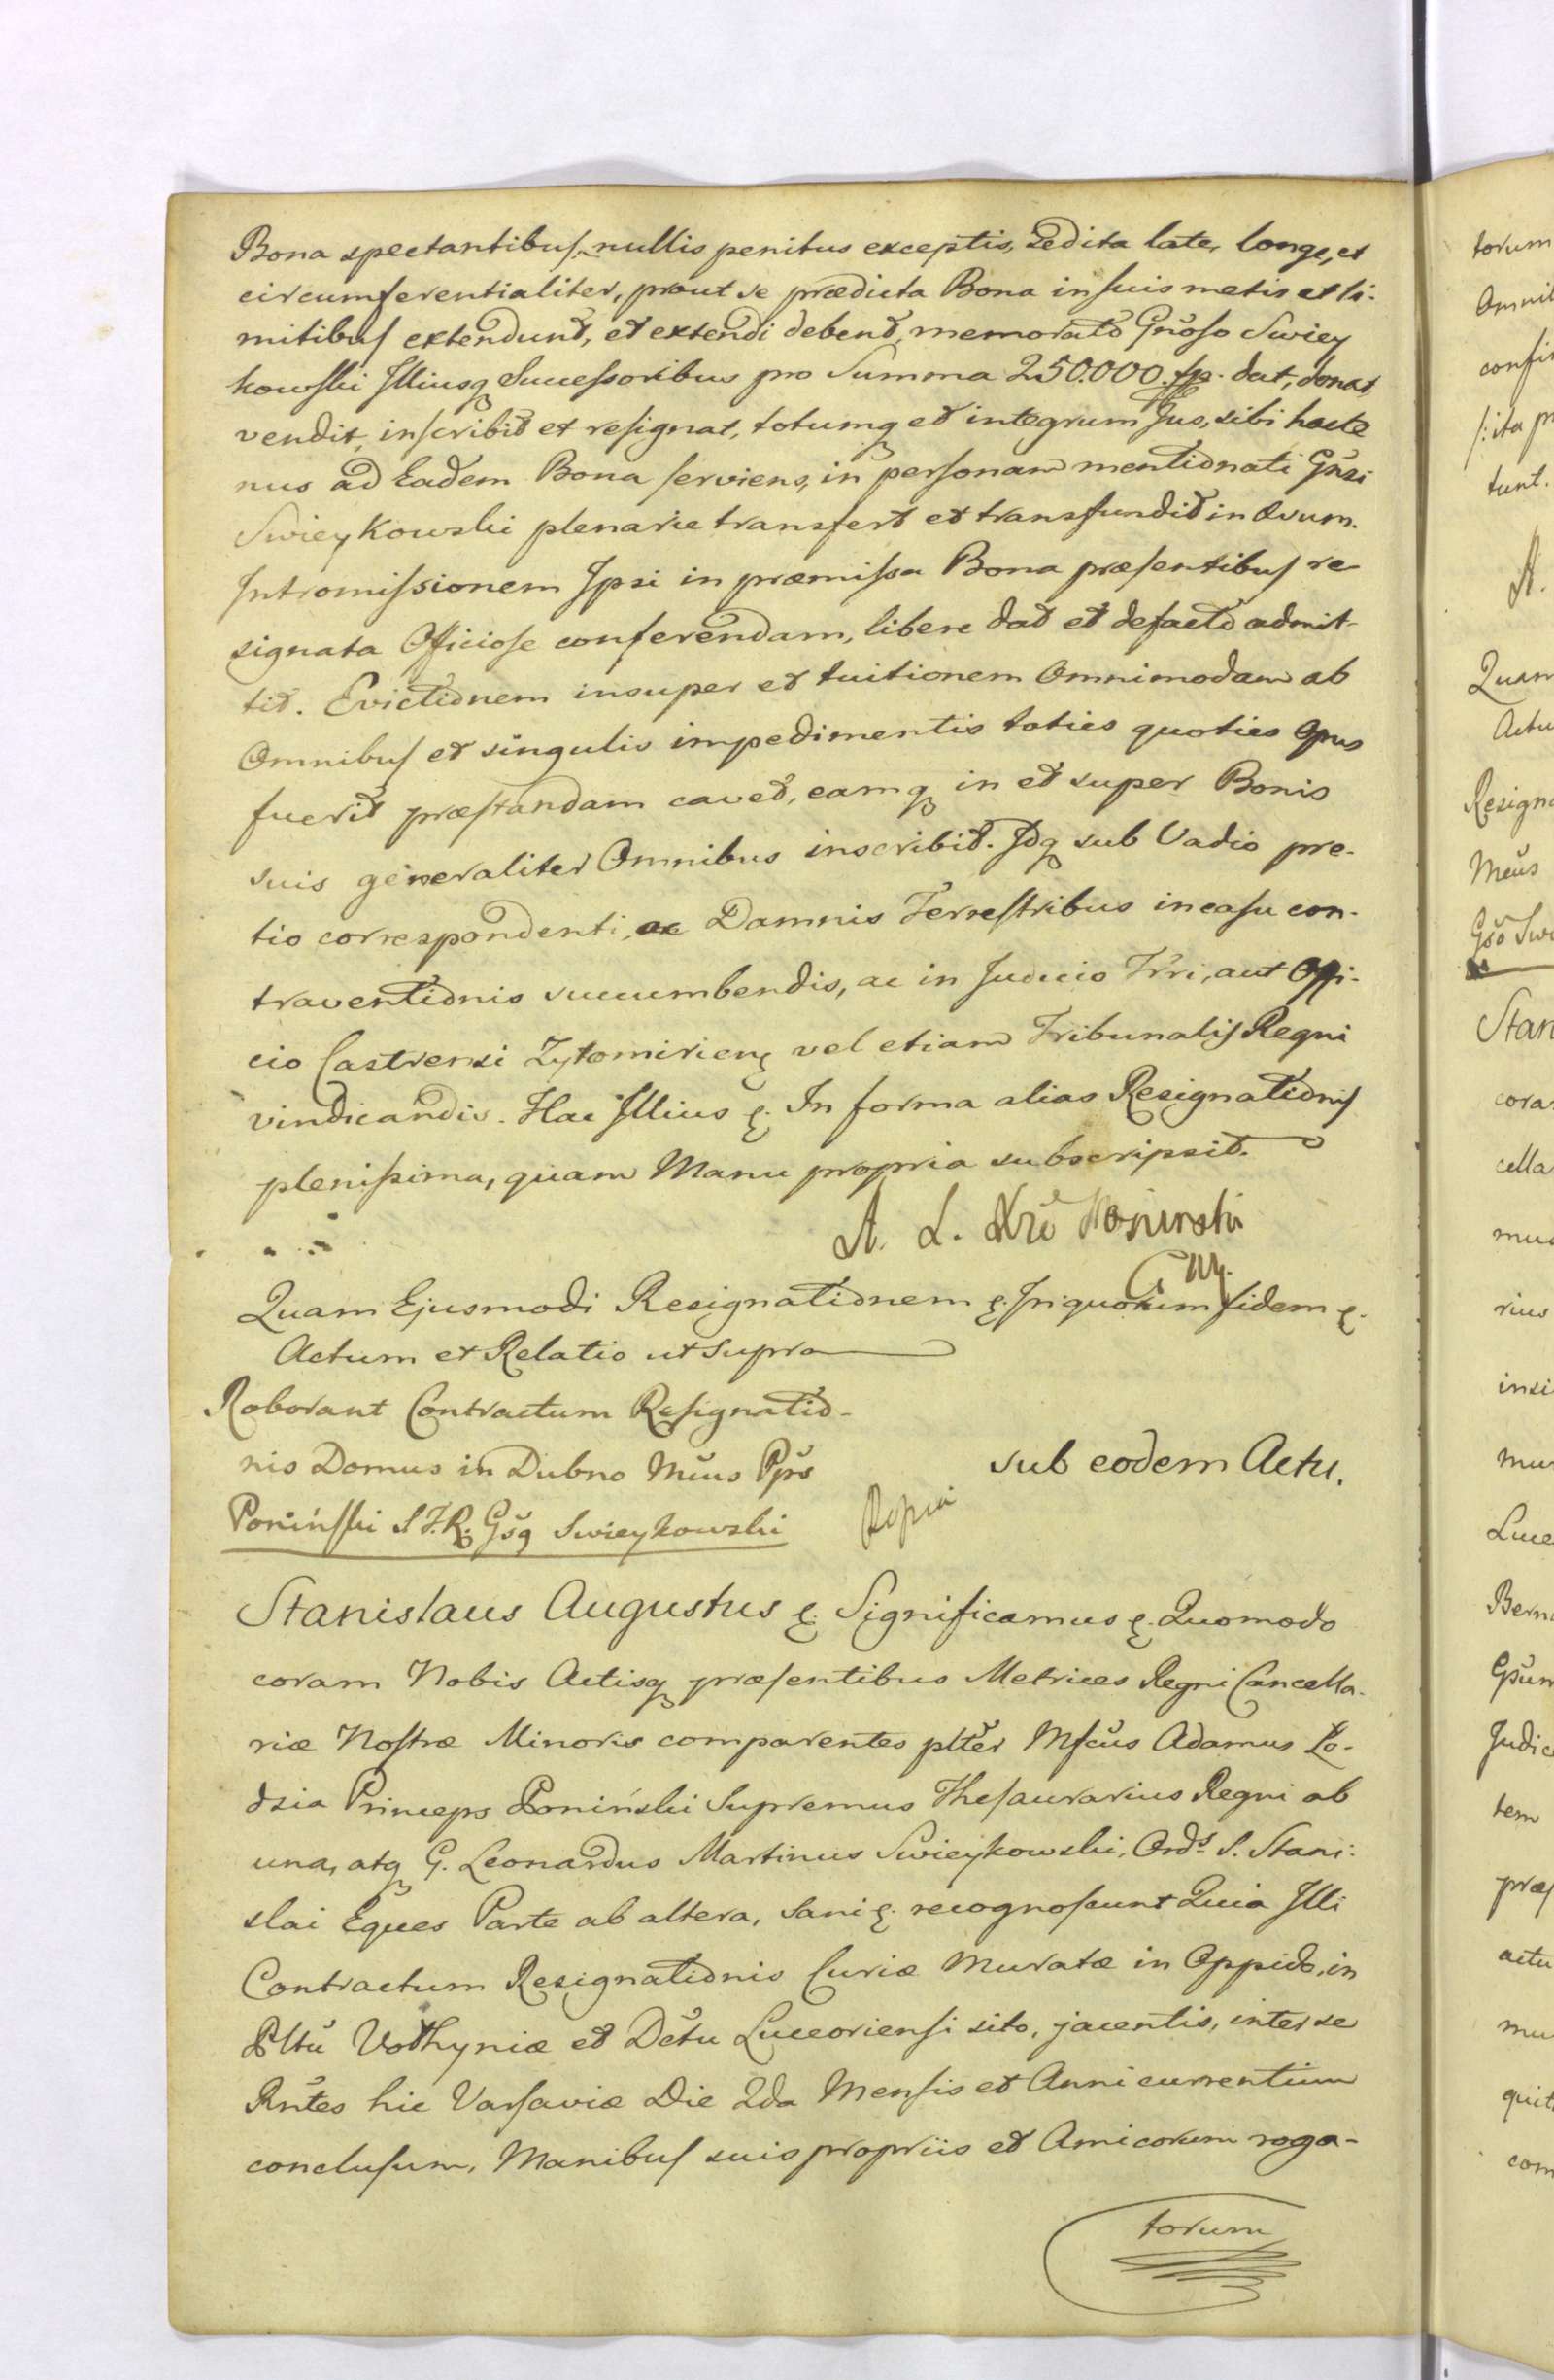 Bona spectantibus, nullis penitus exceptis, sed ita late, longe, et
circumferentialiter, prout se prædicta Bona in suis metis et li-
mitibus extendunt, et extendi debent, memorato Gnõso Swiey
kowski Illiusq Successoribus pro Summa 250.000. fp. dat, donat
vendit, inscribit et resignat, totumq et integrum Jus, sibi hacte
nus ad Eadem Bona serviens, in personam mentionati Gnsi
Swieykowski plenarie transfert et transfundit in Ævum.
Intromissionem Ipsi in præmissa Bona præsentibus re
signata Officiose conferendam, libere dat et defacto admit-
tit. Evictionem insuper et tuitionem Omnimodam ab
Omnibus et singulis impedimentis toties quoties Opus
fuerit præstandam cavet, eamq in et super Bonis
suis generaliter Omnibus inscribit. Idq sub Vadio pre-
tio correspondenti, ac Damnis Terrestribus in casu con-
traventionis succumbendis, ac in Judicio Trri, aut Offi-
cio Castrensi Zytomirien vel etiam Tribunalis Regni
vindicandis. Hac Illius &. In forma alias Resignationis
plenissima, quam Manu propria subscripsit.
A. L. Xże Poninski
Quam Ejusmodi Resignationem &. In quorum fidem &.
Actum et Relatio ut Supra
Roborant Contractum Resignatio-
nis Domus in Dubno Mcus Pps
Poniński S T. R. Gsq Swieykowski
sub eodem Actu.
Stanislaus Augustus &. Significamus &. Quomodo
coram Nobis Actisq præsentibus Metrices Regni Cancella-
riæ Nostræ Minoris comparentes plter Mfcus Adamus Lo-
dzia Princeps Poniński Supremus Thesaurarius Regni ab
una, atq G. Leonardus Martinus Swieykowski, Ords S. Stani-
slai Eques Parte ab altera, Sani &. recognoscunt Quia Illi
Contractum Resignationis Curiæ Muratæ in Oppido, in
Pltu Volhyniæ et Dctu Luceoriensi sito, jacentis, inter se
Rntes hic Varsaviæ Die 2da Mensis et Anni currentium
conclusum, Manibus suis propriis et Amicorum roga-
torum